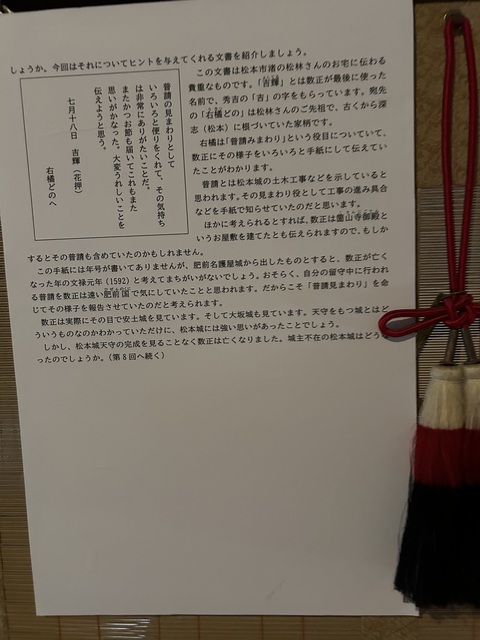 しょうか。今回はそれについてヒントを与えてくれる文書を紹介しましょう。
普請の見まわりとして
いろいろと便りをくれて、その気持ち
は非常にありがたいことだ。
またかつお節も届いてこれもまた
思いがかなった。大変うれしいことを
伝えようと思う。
七月十八日 吉輝（花押）
右橘どのへ
この文書は松本市渚の松林さんのお宅に伝わる
貴重なものです。「吉輝」とは数正が最後に使った
名前で、秀吉の「吉」の字をもらっています。宛先
の「右橘どの」は松林さんのご先祖で、古くから深
志（松本）に根づいていた家柄です。
右橘は「普請みまわり」という役目についていて、
数正にその様子をいろいろと手紙にして伝えてい
たことがわかります。
普請とは松本城の土木工事などを示していると
思われます。その見まわり役として工事の進み具合
などを手紙で知らせていたのだと思います。
ほかに考えられるとすれば、数正は箇山寺御殿と
いうお屋敷を建てたとも伝えられますので、もしか
するとその普請も含めていたのかもしれません。
この手紙には年号が書いてありませんが、肥前名護屋城から出したものとすると、数正が亡く
なった年の文禄元年（1592）と考えてまちがいがないでしょう。おそらく、自分の留守中に行われ
る普請を数正は遠い肥前国で気にしていたことと思われます。だからこそ「普請見まわり」を命
じてその様子を報告させていたのだと考えられます。
数正は実際にその目で安土城を見ています。そして大坂城も見ています。天守をもつ城とはど
ういうものなのかわかっていただけに、松本城には強い思いがあったことでしょう。
しかし、松本城天守の完成を見ることなく数正は亡くなりました。城主不在の松本城はどう
ったのでしょうか。（第８回へ続く）